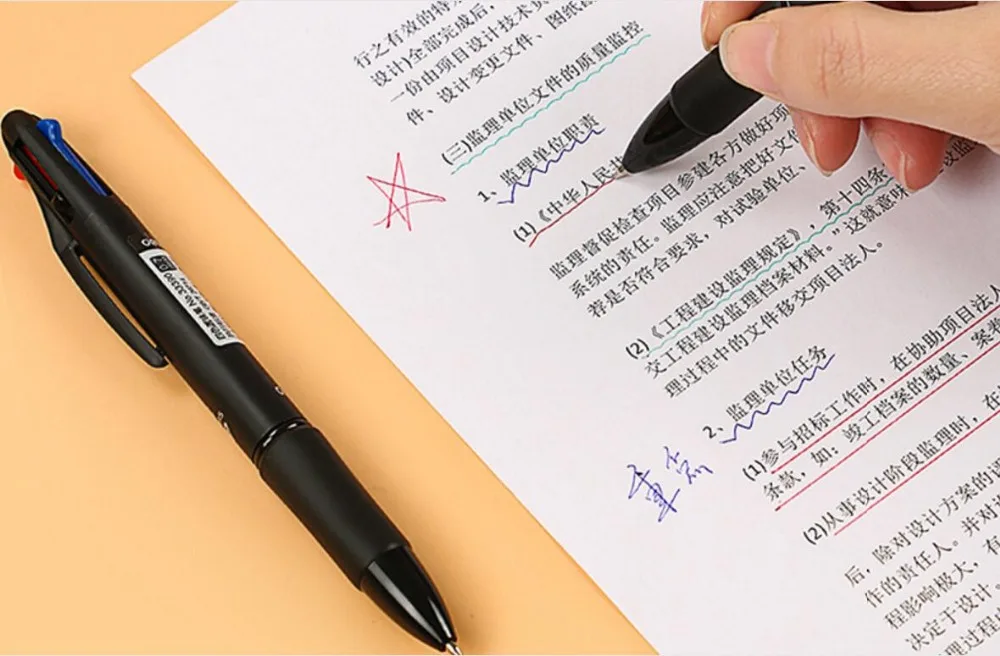 行之有效的特
设计)全部完成后，
一份由项目设计技术负
件、设计变更文件、图纸
(三)监理单位文件的质量监控
1、监理单位职责
(1)《中华人民
监理督促检查项目参建各方做好项
系统的责任。监理应注意把好文
荐是否符合要求，对试验单位、
(2)《工程建设监理规定》，第十四条
交工程建设监理档案材料。”这就意味
理过程中的文件移交项目法人。
2、监理单位任务
重点
(1)参与招标工作时，在协助项目法人
条款，如：竣工档案的数量、案卷
(2)从事设计阶段监理时，在
后，除对设计方案的
作的责任人。并对
程影响极大，有
决定于设计。
理过程
deli
No.33390